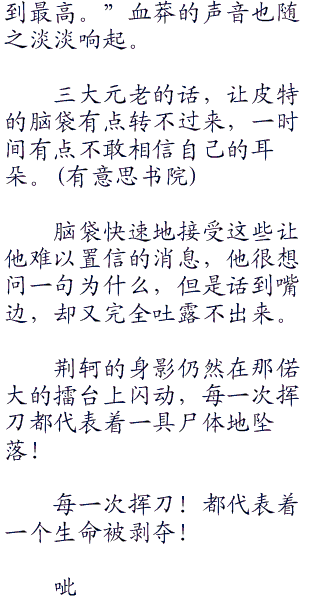 到最高。”血莽的声音也随
之淡淡响起。
三大元老的话，让皮特
的脑袋有点转不过来，一时
间有点不敢相信自己的耳
朵。(有意思书院)
脑袋快速地接受这些让
他难以置信的消息，他很想
问一句为什么，但是话到嘴
边，却又完全吐露不出来。
荆轲的身影仍然在那偌
大的擂台上闪动，每一次挥
刀都代表着一具尸体地坠
落！
每一次挥刀！都代表着
一个生命被剥夺！
呲